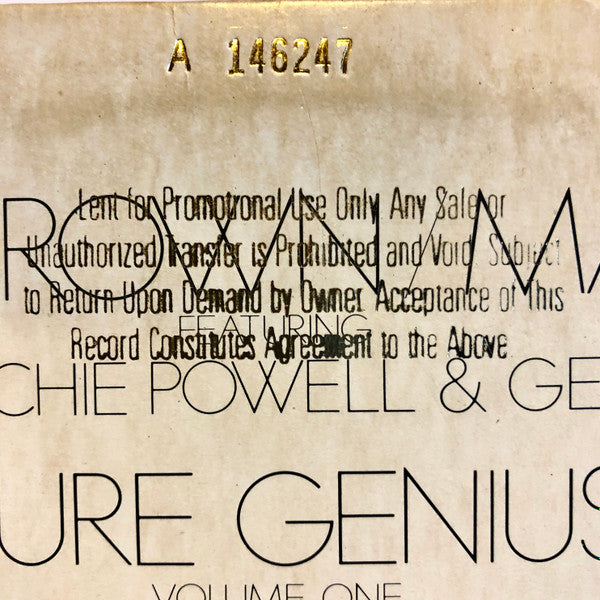 A 146247
Lent for Promotional Use Only Any Sale or
ROWN/MA
Unauthorized Transfer is Prohibited and Void. Subject
to Return Upon Demand by Owner. Acceptance of This
FEATURING
Record Constitutes Agreement to the Above
CHIE POWELL & GE
URE GENIUS
VOLUME ONE